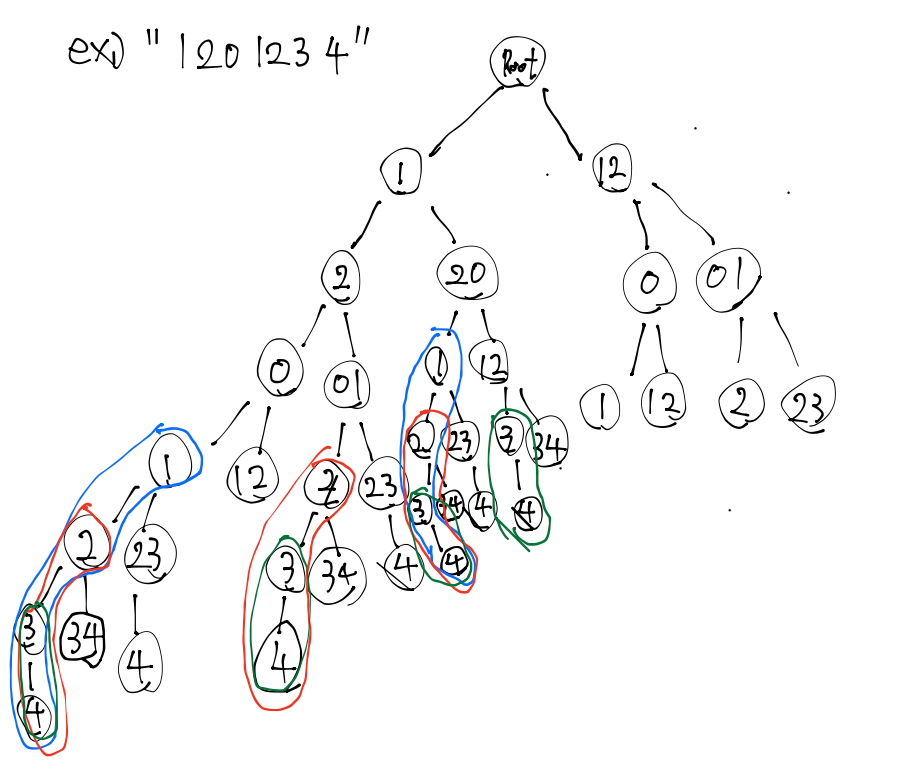 ex) "1201234"
Root
1 12
2 20 0 01
0 01 1 12 1 12 2 23
1 12 2 23 2 23 3 34
2 23 3 34 4 3 34 4 4
3 34 4 4 4
4